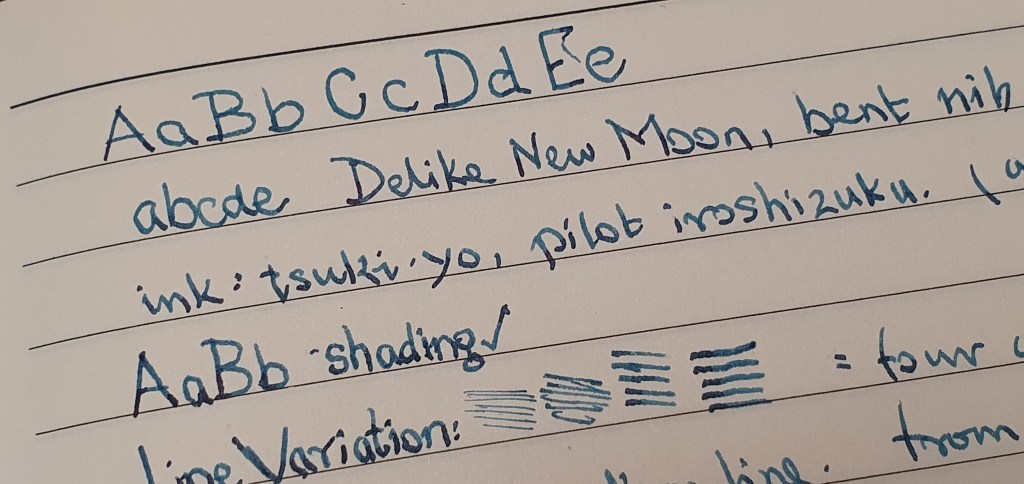 Aa Bb Cc Dd Ee
abcde Delike New Moon, bent nib
ink: tsuki-yo, pilot iroshizuku. (
AaBb -shading✓
Line Variation: = four
line. from